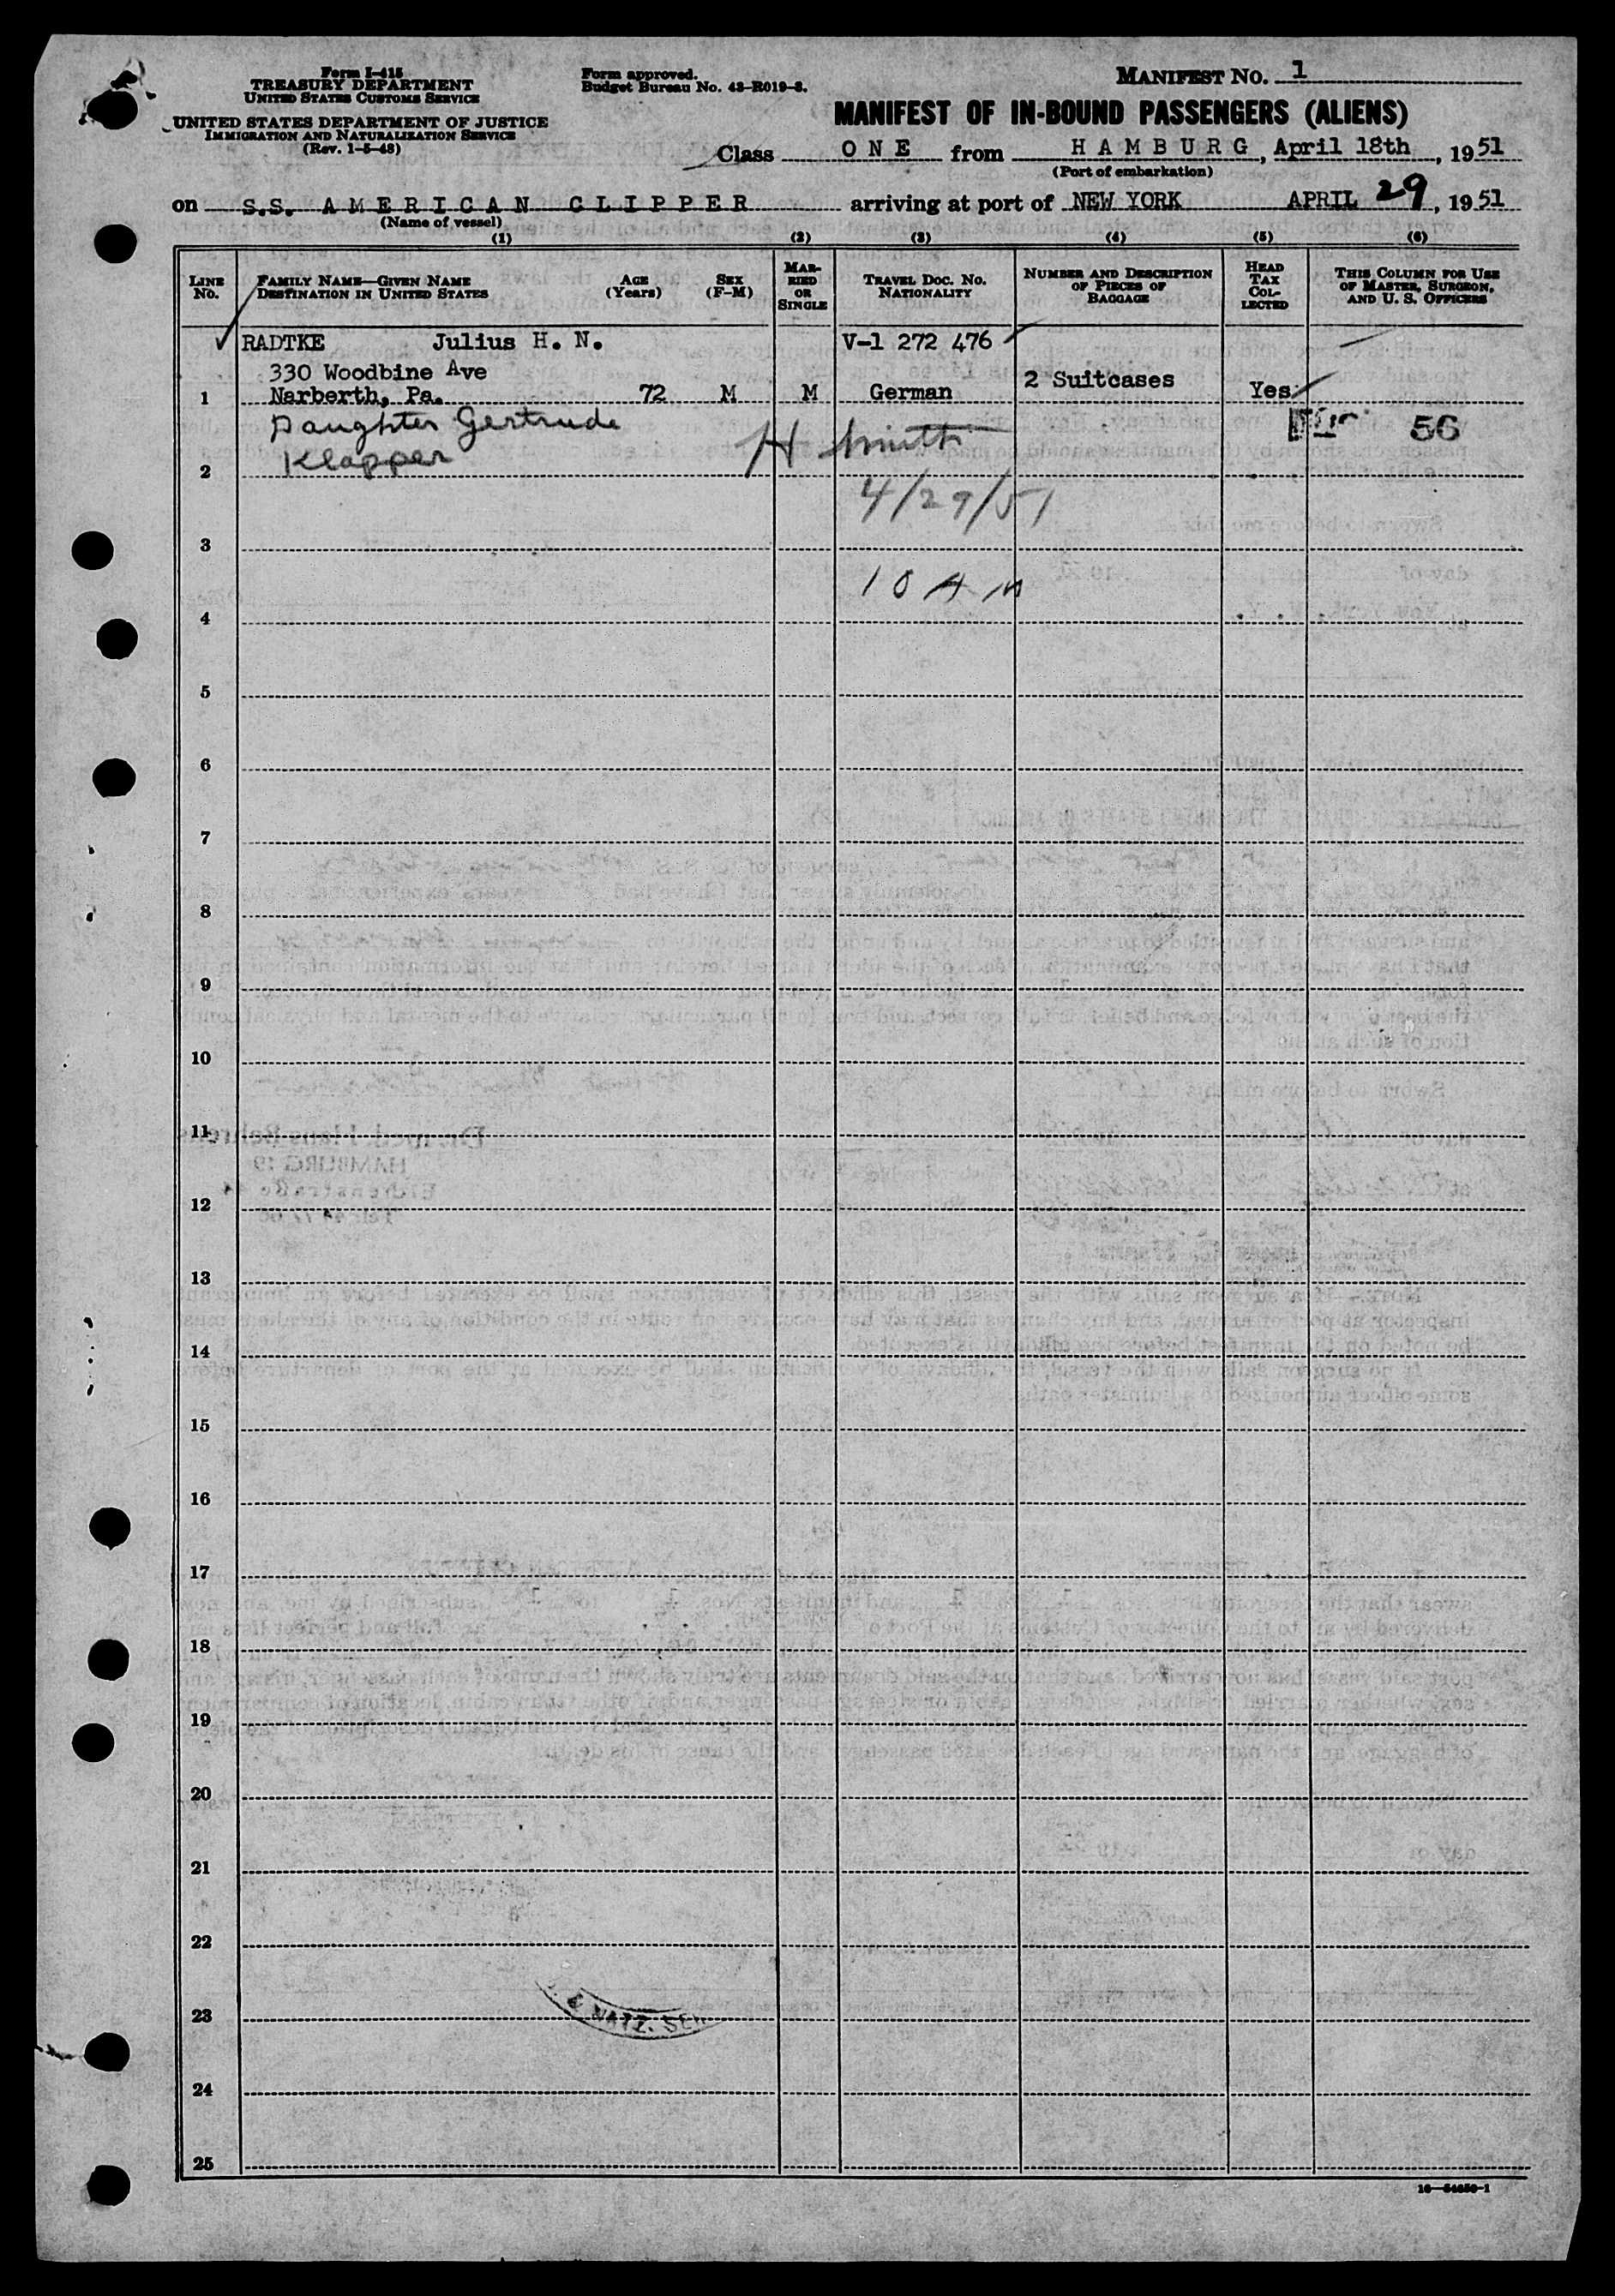 Form I-415
TREASURY DEPARTMENT
UNITED STATES CUSTOMS SERVICE
UNITED STATES DEPARTMENT OF JUSTICE
IMMIGRATION AND NATURALIZATION SERVICE
(Rev. 1-5-48)
Form approved.
Budget Bureau No. 43-R019-3.
MANIFEST NO. 1
MANIFEST OF IN-BOUND PASSENGERS (ALIENS)
Class ONE from HAMBURG, April 18th, 1951
(Port of embarkation)
on S.S. AMERICAN CLIPPER arriving at port of NEW YORK APRIL 29, 1951
(Name of vessel)
(1) (2) (3) (4) (5) (6)
LINE No.
FAMILY NAME—GIVEN NAME
DESTINATION IN UNITED STATES
AGE (Years)
SEX (F-M)
MARRIED OR SINGLE
TRAVEL DOC. NO.
NATIONALITY
NUMBER AND DESCRIPTION OF PIECES OF BAGGAGE
HEAD TAX COLLECTED
THIS COLUMN FOR USE OF MASTER, SURGEON, AND U. S. OFFICERS
RADTKE Julius H. N. V-1 272 476
330 Woodbine Ave
1 Narberth, Pa. 72 M M German 2 Suitcases Yes
Daughter Gertrude 56
Klapper H Smith
2
4/29/51
3
10 AM
4
5
6
7
8
9
10
11
12
13
14
15
16
17
18
19
20
21
22
23
& NATZ. SER
24
25